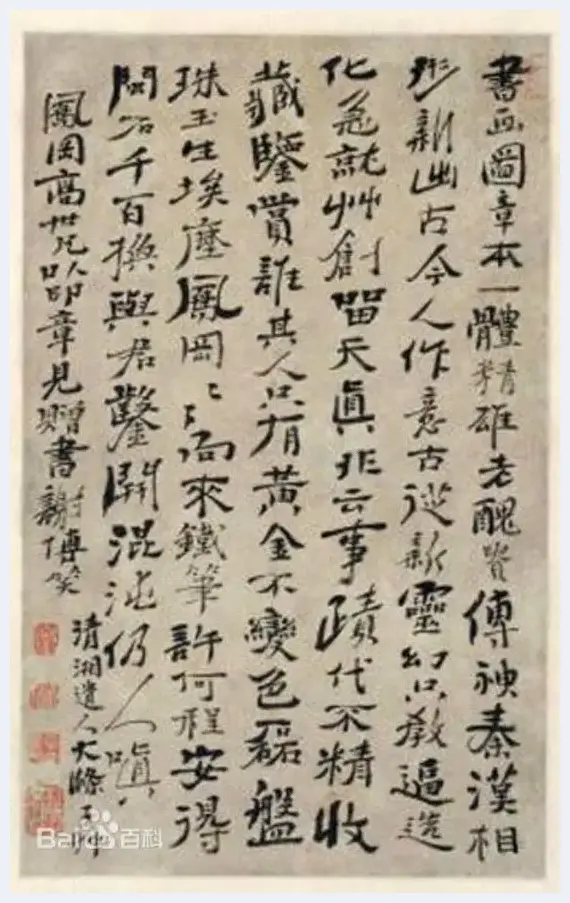 書画圖章本一體精雄老醜貴傳神秦漢相
形新出古今人作意古從新靈幻只教逼造
化急就艸創留天眞非云事蹟代不精收
藏鑒賞誰其人只有黃金不變色磊盤
珠玉生埃塵鳳岡〻〻向來鐵筆許何程安得
閒石千百換與君鑿開混沌仍人嗔
鳳岡高世兄以印章見贈書謝博笑
清湘遺人大滌子艸
Bai百科